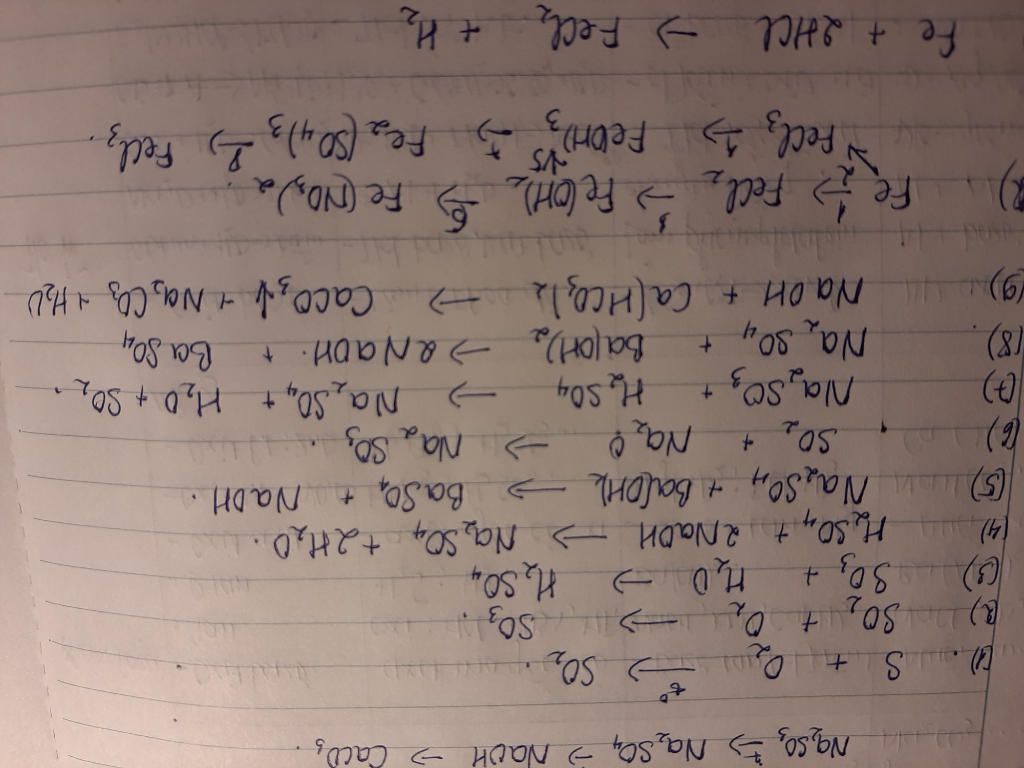 Na₂SO₃ →⁷ Na₂SO₄ → NaOH → CaCO₃.
(1). S + O₂ —t°→ SO₂.
(2) SO₂ + O₂ → SO₃.
(3) SO₃ + H₂O → H₂SO₄
(4) H₂SO₄ + 2NaOH → Na₂SO₄ + 2H₂O.
(5) Na₂SO₄ + Ba(OH)₂ → BaSO₄ + NaOH.
(6) SO₂ + Na₂O → Na₂SO₃.
(7) Na₂SO₃ + H₂SO₄ → Na₂SO₄ + H₂O + SO₂.
(8) Na₂SO₄ + Ba(OH)₂ → 2NaOH. + BaSO₄
(9) NaOH + Ca(HCO₃)₂ → CaCO₃↓ + Na₂CO₃ + H₂O
2) Fe —1→ FeCl₂ —3→ Fe(OH)₂ —6→ Fe(NO₃)₂.
2↘ FeCl₃ —4→ Fe(OH)₃ ↓5 —7→ Fe₂(SO₄)₃ —8→ FeCl₃.
Fe + 2HCl → FeCl₂ + H₂